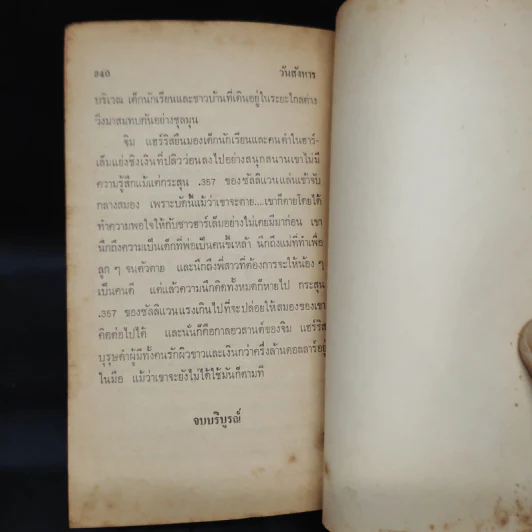 ๓๔๐ วันสังหาร
บริเวณ เด็กนักเรียนและชาวบ้านที่เดินอยู่ในระยะไกลต่าง
วิ่งมาสมทบกันอย่างชุลมุน
จิม แฮร์ริสยืนมองเด็กนักเรียนและคนดำในฮาร์-
เล็มแย่งชิงเงินที่ปลิวว่อนลงไปอย่างสนุกสนานเขาไม่มี
ความรู้สึกแม้แต่กระสุน .357 ของซัลลิแวนแล่นเข้าจับ
กลางสมอง เพราะบัดนี้แม้ว่าเขาจะตาย...เขาก็ตายโดยได้
ทำความพอใจให้กับชาวฮาร์เล็มอย่างไม่เคยมีมาก่อน เขา
นึกถึงความเป็นเด็กที่พ่อเป็นคนขี้เหล้า นึกถึงแม่ที่ทำเพื่อ
ลูก ๆ จนตัวตาย และนึกถึงพี่สาวที่ต้องการจะให้น้อง ๆ
เป็นคนดี แต่แล้วความนึกคิดทั้งหมดก็หายไป กระสุน
.357 ของซัลลิแวนแรงเกินไปที่จะปล่อยให้สมองของเขา
คิดต่อไปได้ และนั่นก็คือกาลอวสานต์ของจิม แฮร์ริส
บุรุษดำผู้มีทั้งคนรักผิวขาวและเงินกว่าครึ่งล้านดอลลาร์อยู่
ในมือ แม้ว่าเขาจะยังไม่ได้ใช้มันก็ตามที
จบบริบูรณ์